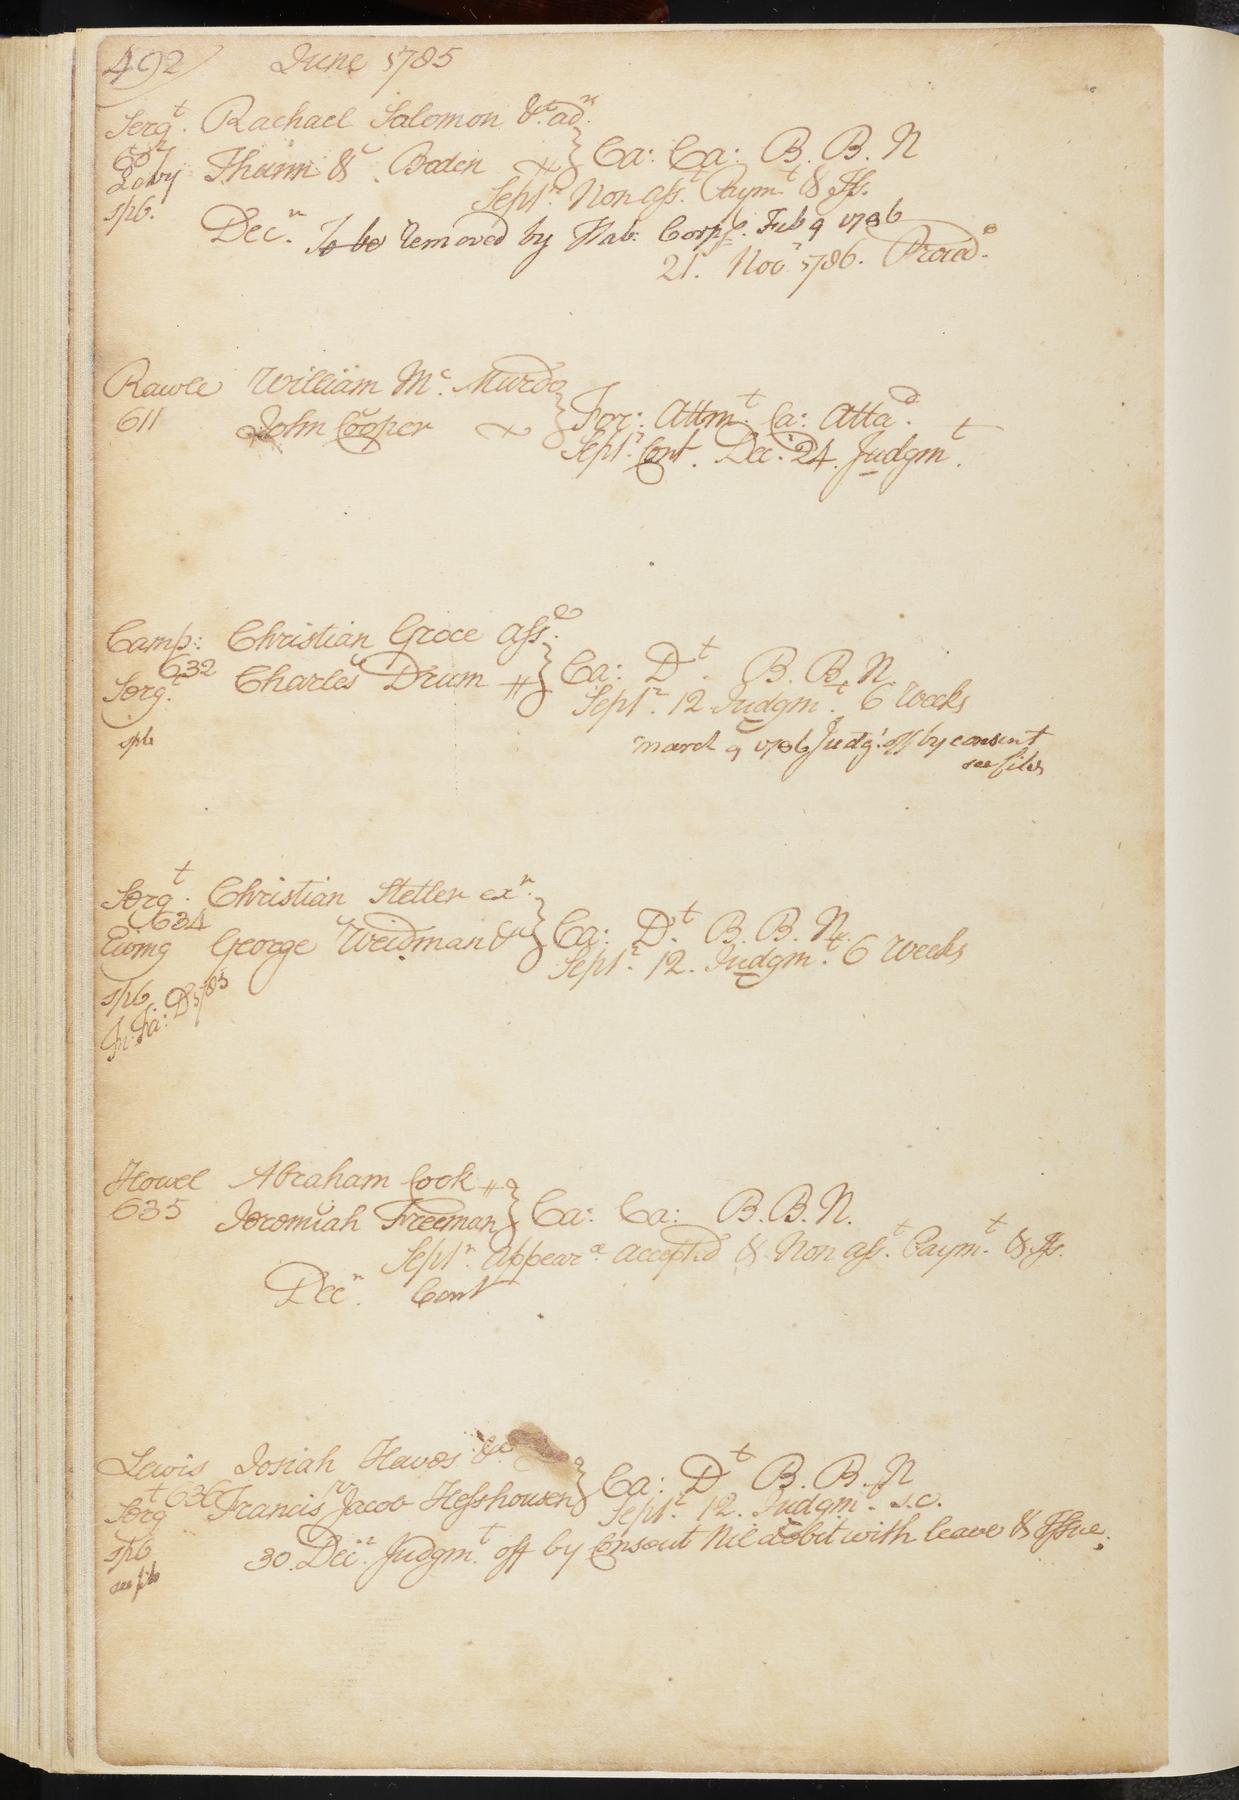 492 June 1785
Serg.t Rachael Salomon &c. ad.x
607
Levy Thunn & Boden } Ca: Ca: B. B. N
spb. Sept.r Non ass.t Paym.t & Iss.
Dec.r To be removed by Hab: Corps. Feb 9 1786
21. Nov.r 1786. Proced.o
Rawle William Mc. Murdo
611 John Cooper } For: Attm.t Ca: Atta.d
Sept.r Cont. Dec.r 24. Judgm.t
Camp: Christian Groce Ass.e
632
Serg.t Charles Drum } Ca: D.t B. B. N
Sept.r 12 Judgm.t 6 Weeks
spb
March 9 1786 Judg.t off by consent
see files
Serg.t Christian Stetler ex.r
634
Ewing George Weidman &c } Ca: D.t B. B. N.
Sept.r 12. Judgm.t 6 Weeks
spb
Fi: Fa: D 1785
Howel Abraham Cook
635 Jeremiah Freeman } Ca: Ca: B. B. N.
Sept.r Appear.e accepted & Non ass.t Paym.t & Iss.
Dec.r Cont
Lewis Josiah Hewes &c.
636
Serg.t Francis Jacob Hesshousen } Ca: D.t B. B. N
Sept.r 12. Judgm.t s.c.
spb 30. Dec.r Judgm.t off by Consent Nil debit with leave & Issue.
see file